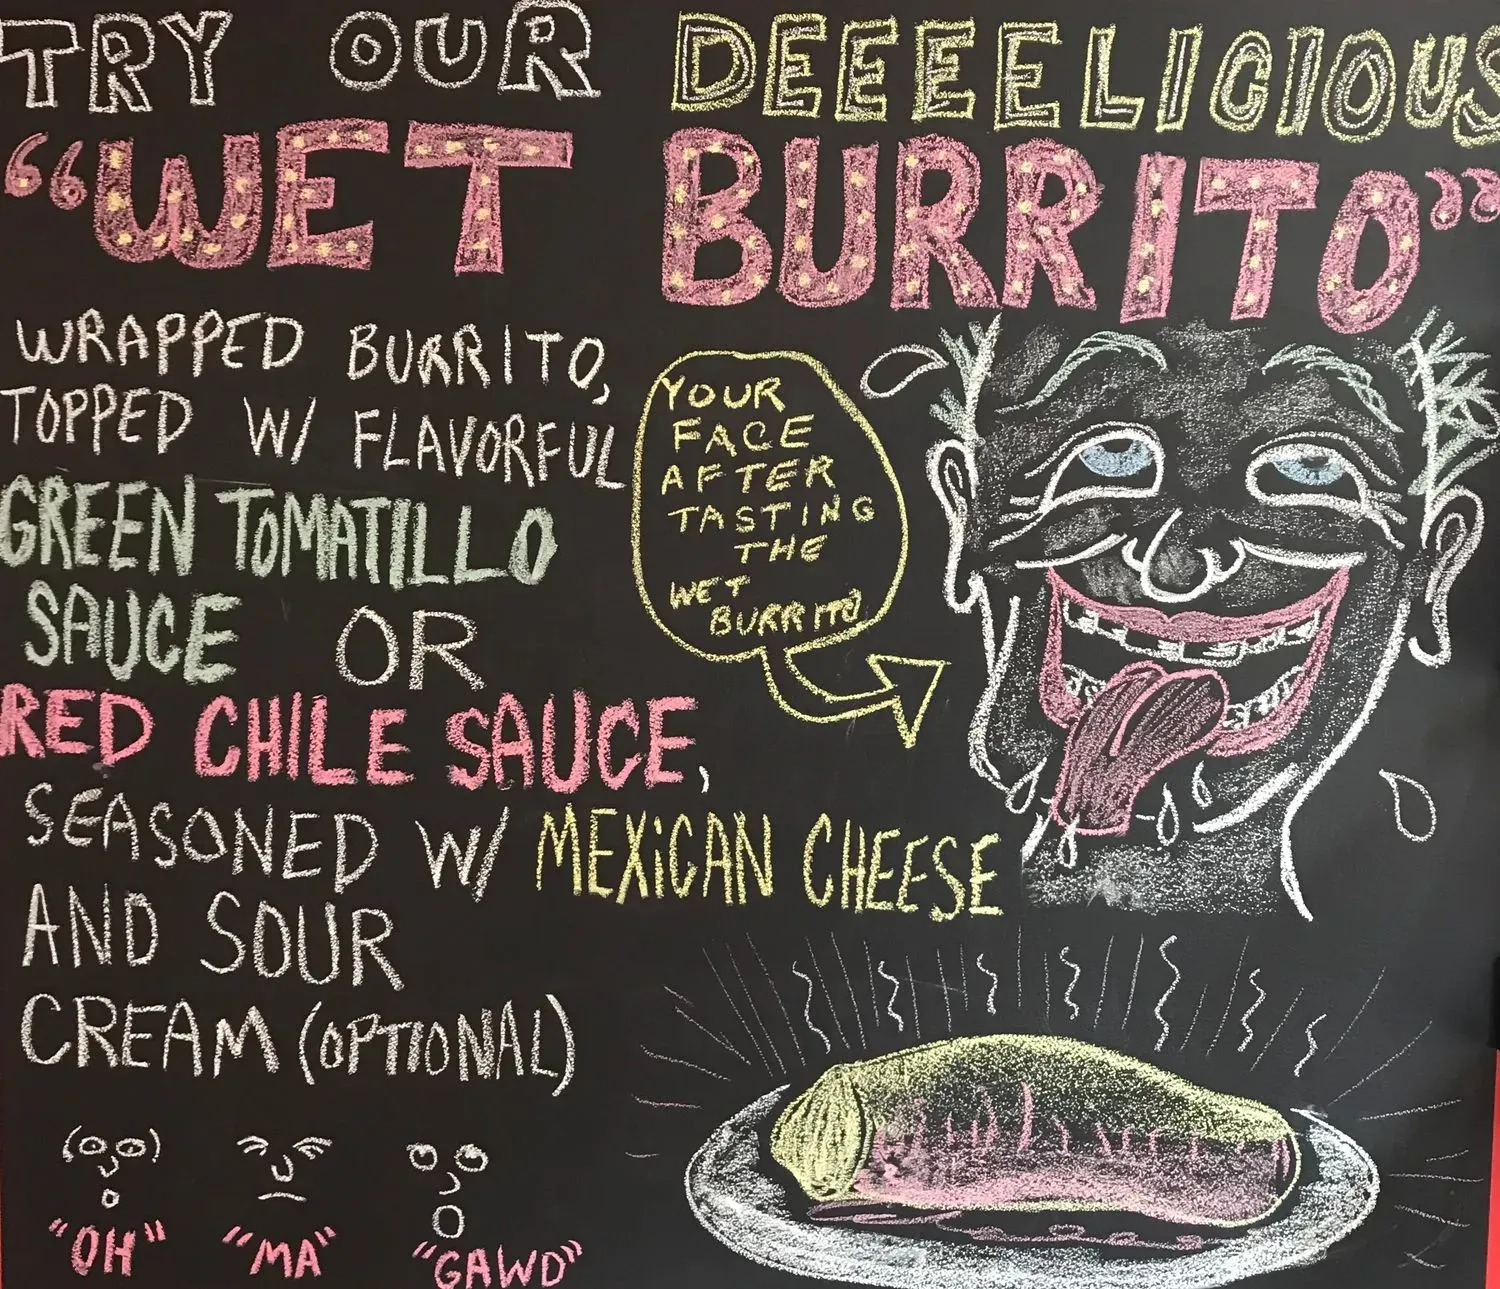 TRY OUR DEEEELICIOUS
“WET BURRITO”
WRAPPED BURRITO,
TOPPED W/ FLAVORFUL
GREEN TOMATILLO
SAUCE OR
RED CHILE SAUCE,
SEASONED W/ MEXiCAN CHEESE
AND SOUR
CREAM (OPTIONAL)
YOUR
FACE
AFTER
TASTING
THE
WET
BURRITO
"OH" "MA" "GAWD"